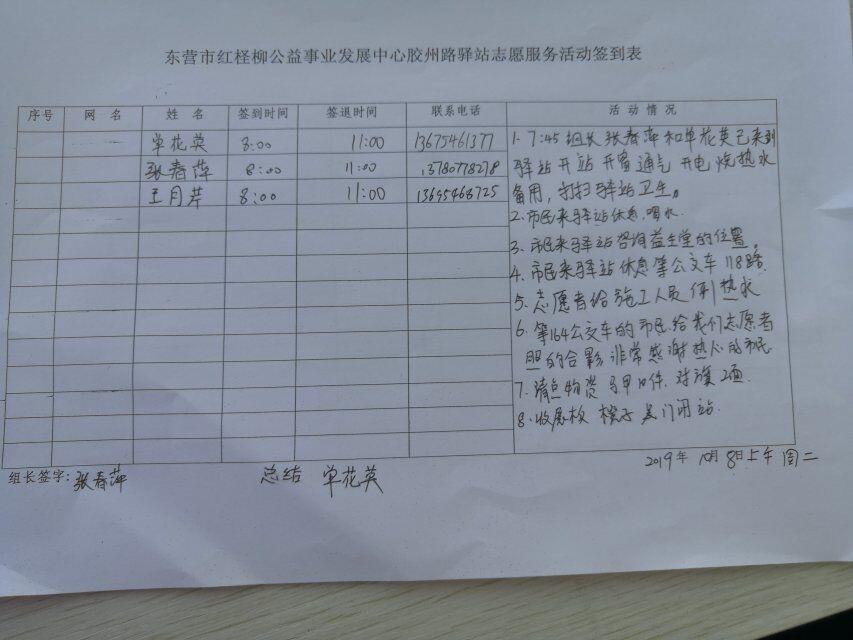 东营市红柽柳公益事业发展中心胶州路驿站志愿服务活动签到表
序号 网 名 姓 名 签到时间 签退时间 联系电话 活 动 情 况
单花英 8:00 11:00 13675461377
张春萍 8:00 11:00 13780778278
王月芹 8:00 11:00 13695468725
1. 7:45 组长张春萍和单花英已来到
驿站开站 开窗通气 开电烧热水
备用,打扫驿站卫生。
2. 市民来驿站休息,喝水.
3. 市民来驿站咨询益生堂的位置,
4. 市民来驿站休息等公交车118路.
5. 志愿者给施工人员倒热水
6. 等164公交车的市民给我们志愿者
照的合影,非常感谢热心的市民
7. 清点物资 马甲10件. 对旗2面.
8. 收展板 梯子 关门闭站.
2019年10月8日上午 周二
组长签字: 张春萍 总结 单花英